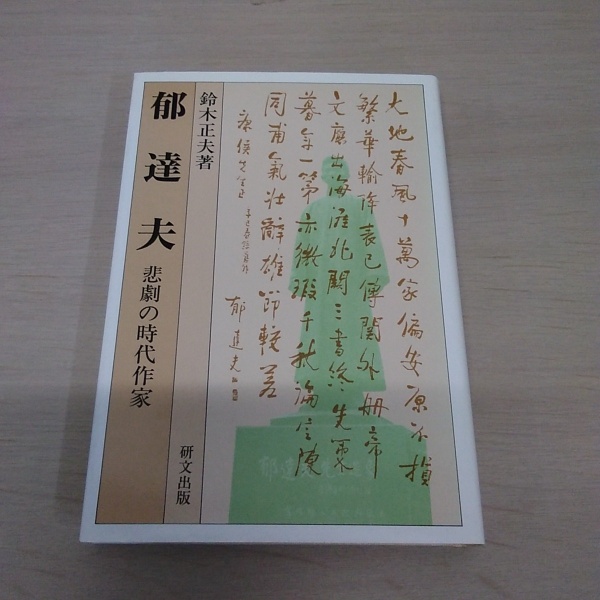 郁達夫
悲劇の時代作家
鈴木正夫著
研文出版
大地春風十萬家偏安原不損
繁華輸降表已傳關外册帝
文應出海涯北闕三書終失策
暮年一第亦微瑕千秋論定陳
同甫氣壯辭雄節較差
康侯先生正
郁達夫